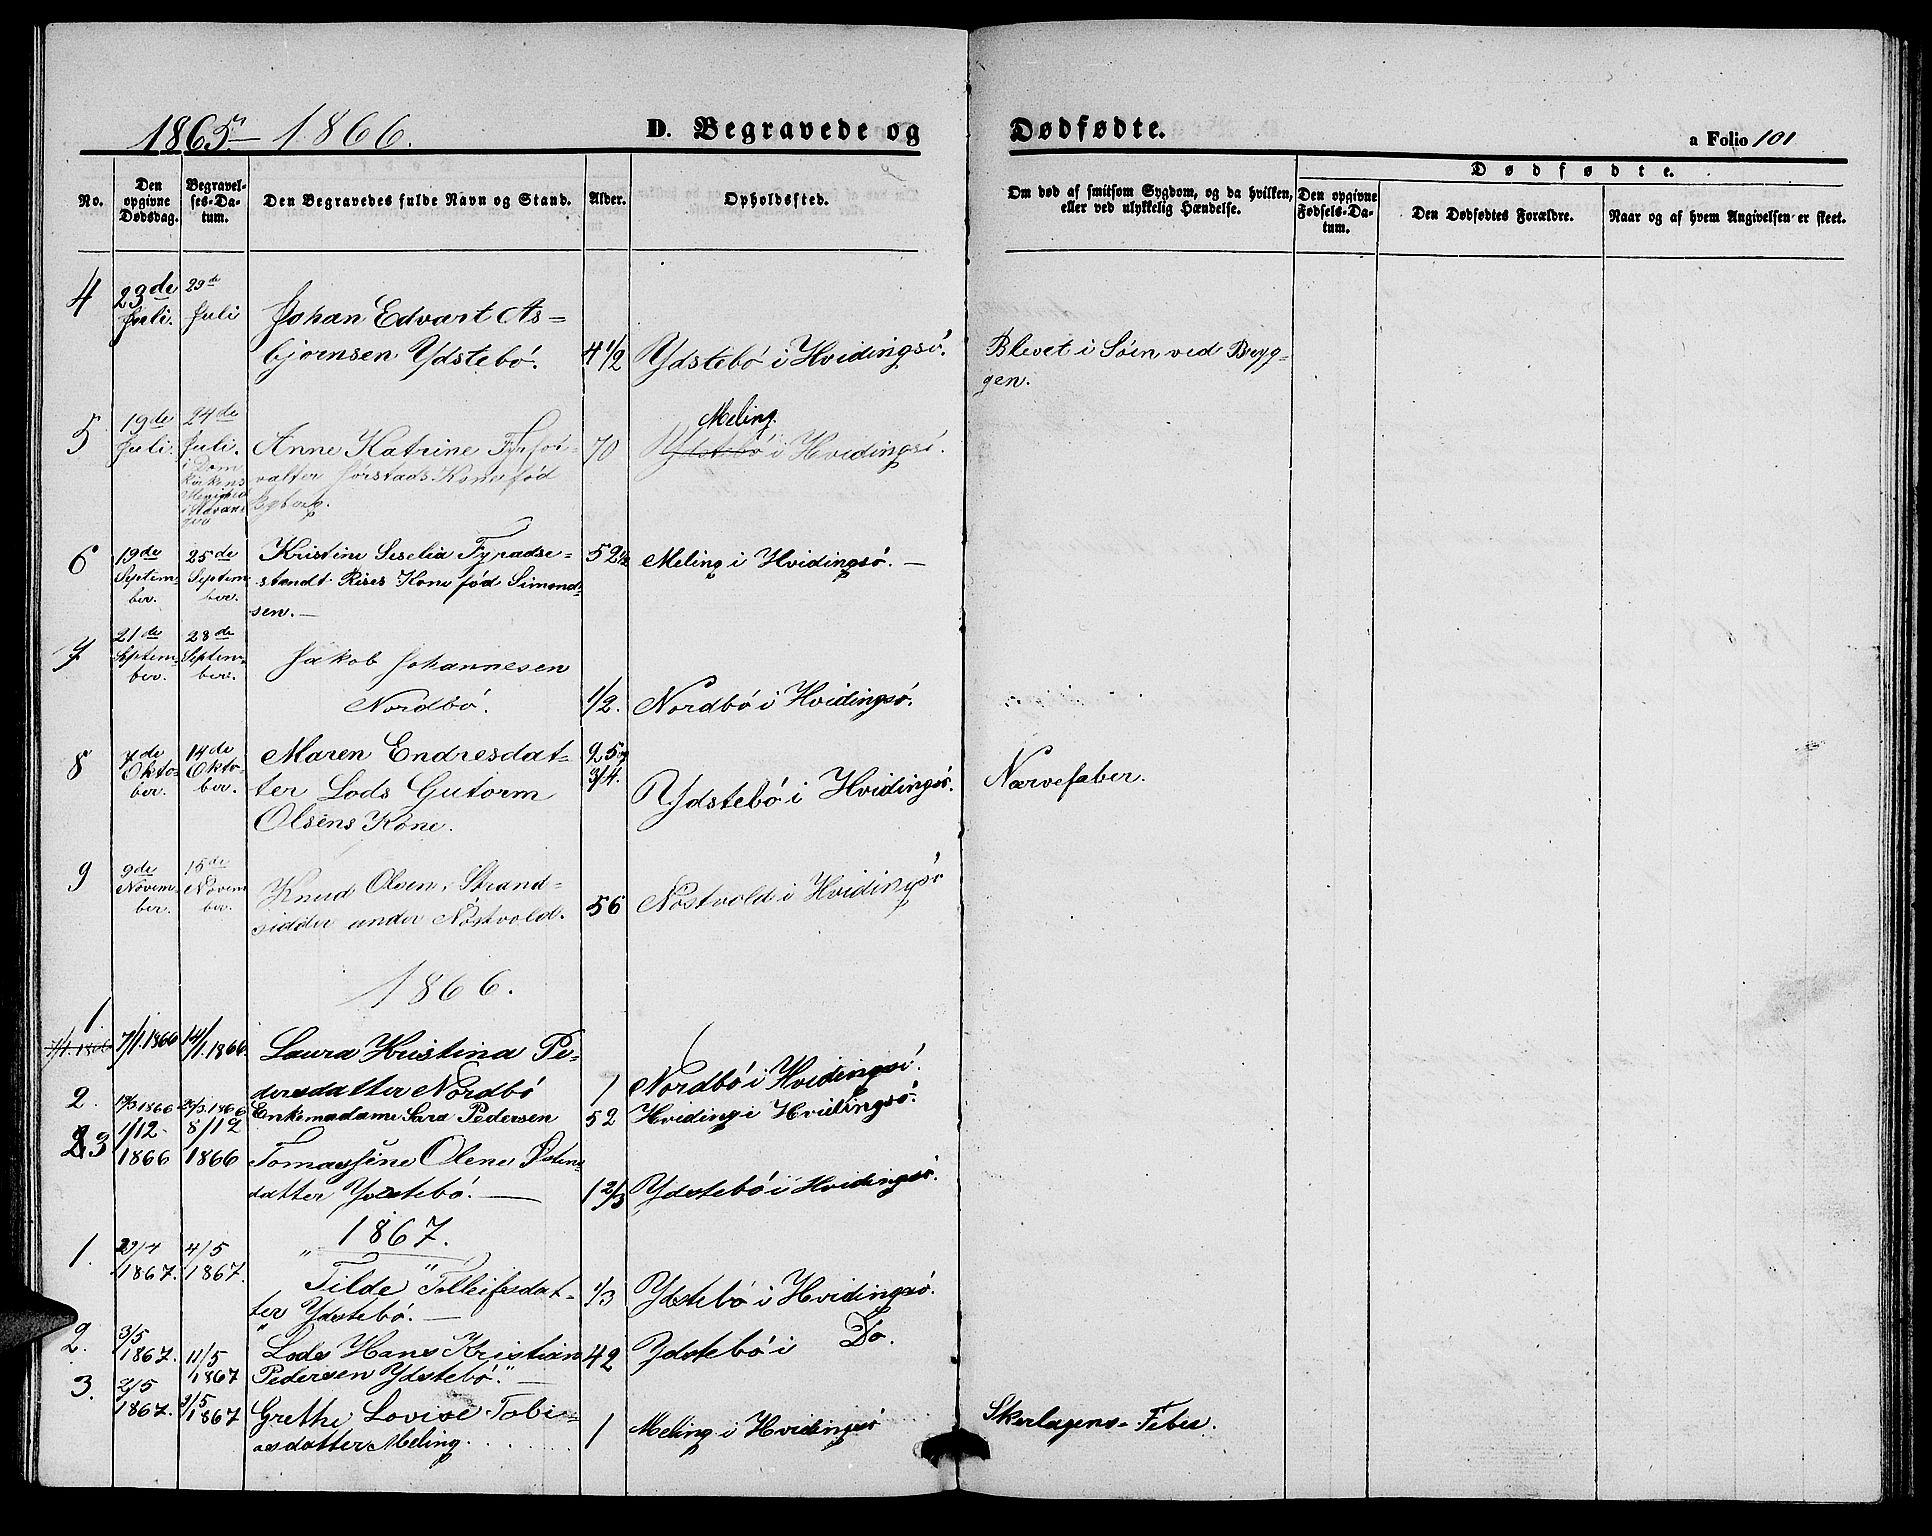 1865 - 1866.
D. Begravede og Dødfødte.
a Folio 101
No.
Den opgivne Dødsdag.
Begravelses-Datum.
Den Begravedes fulde Navn og Stand.
Alder.
Opholdssted.
Om død af smitsom Sygdom, og da hvilken, eller ved ulykkelig Hændelse.
Dødfødte.
Den opgivne Fødsels-Datum.
Den Dødfødtes Forældre.
Naar og af hvem Angivelsen er skeet.
4 23de Juli. 29de Juli Johan Edvart As-
bjørnsen Ydstebö. 4 1/2 Ydstebö i Hvidingsö. Blevet i Söen ved Bryg-
gen.
5 19de Juli. 24de Juli. i Domkirkens Menighed i Stavanger
Anne Katrine Fyrfor- 70 Meling Ydstebö i Hvidingsö.
valter Jørstads Kone fød
6 19de September. 25de September. Kristine Seselia Fyradsi- 52 1/2 Meling i Hvidingsö. —
stendt Rises Kone fød Simond-
sen. —
7 21de September. 28de September. Jakob Johannesen
Nordbö. 1/2. Nordbö i Hvidingsö.
8 7de Oktober. 14de Oktober. Maren Endresdat- 25 3/4.
ter Lods Gutorm Ydstebö i Hvidingsö. Nærvefeber.
Olsens Kone.
9 9de November. 15de November. Knud Olsen, Strand-
sidder under Nöstvold. 56 Nöstvold i Hvidingsö
1866.
1. 7/1.1866 7/1.1866 14/1.1866. Laura Kristina Pe-
dersdatter Nordbö 1 Nordbö i Hvidingsö.
2. Enkemadame Sara Pedersen 52 Hviding i Hvidingsö.
3 1/12. 1866 8/12 1866 Tomassine Olene Østens-
datter Ydstebö. — 1 2/3 Ydstebö i Hvidingsö.
1867.
1. 29/4 1867. 4/5 1867. Tilde Tolleifsdat-
ter Ydstebö. — 1/3 Ydstebö i Hvidingsö.
2. 3/5 1867. 11/5 1867 Lods Hans Kristian 42 Ydstebö i Do.
Pedersen Ydstebö. —
3. 2/5 1867. 1867 Grethe Lovise Tobi-
asdatter Meling. 1 Meling i Hvidingsö Skarlagens-Feber.